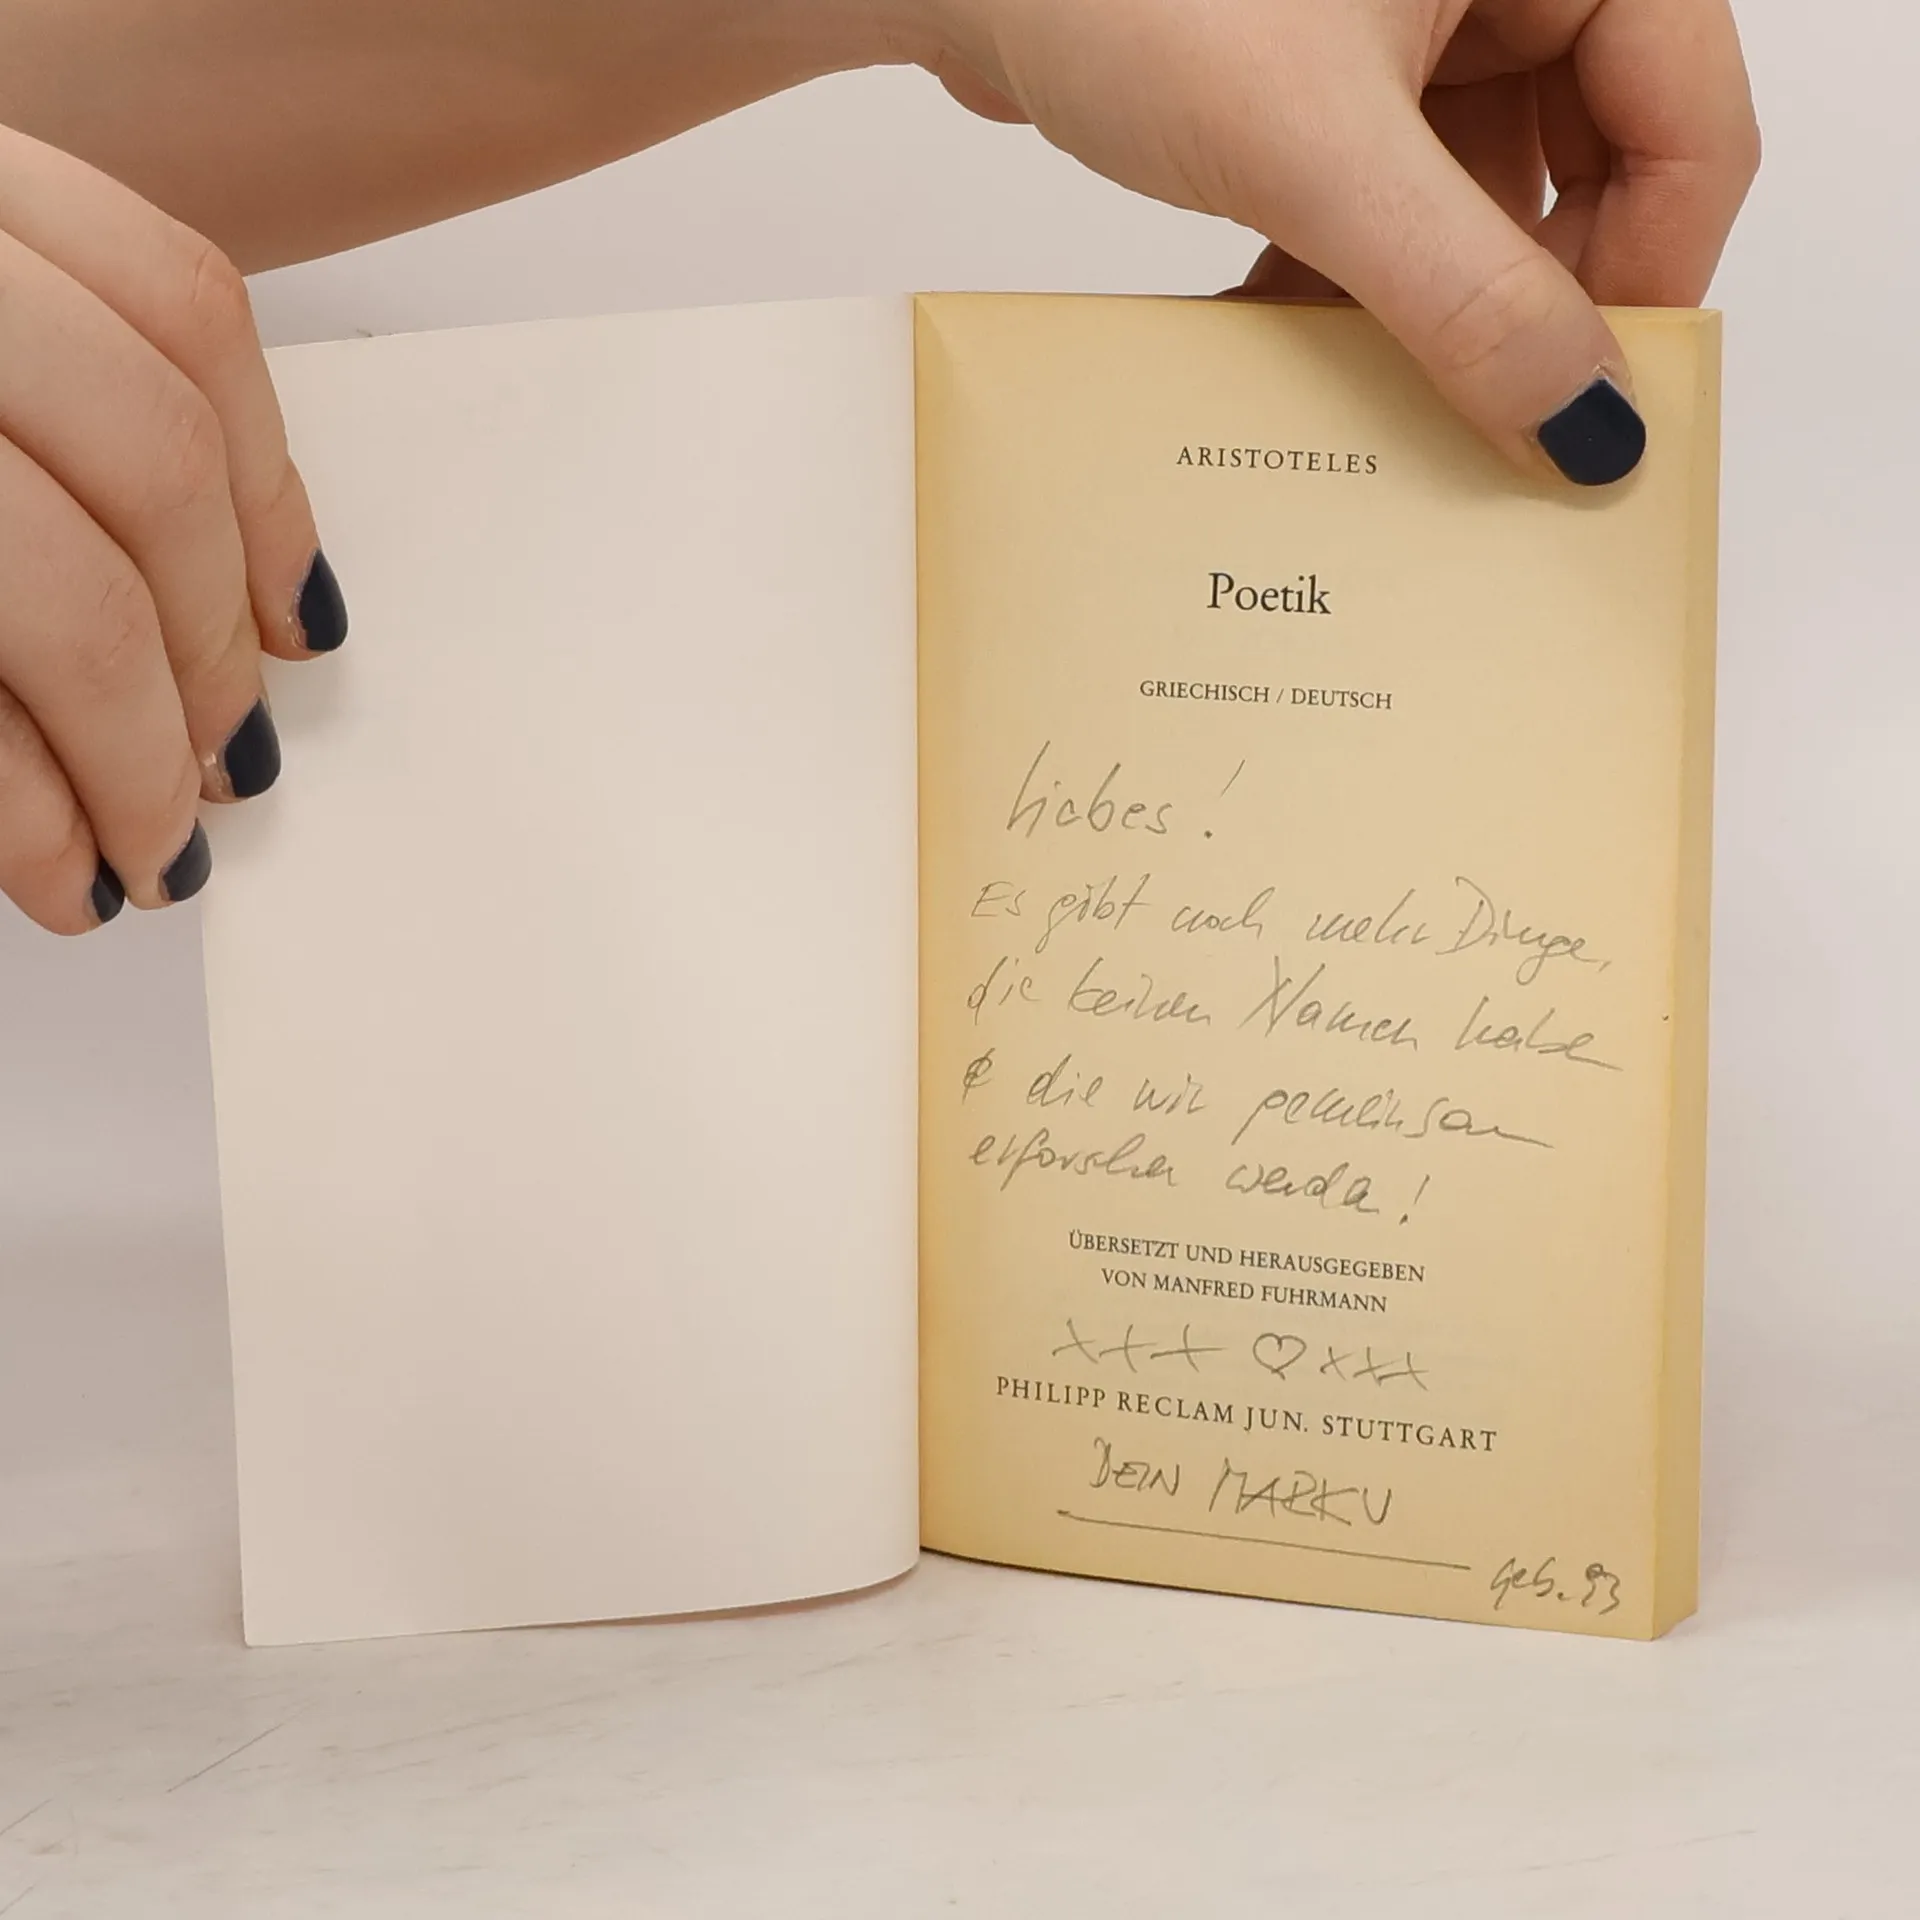 ARISTOTELES
Poetik
GRIECHISCH / DEUTSCH
Liebes!
Es gibt noch mehr Dinge,
die keinen Namen habe
& die wir gemeinsam
erforschen werden!
ÜBERSETZT UND HERAUSGEGEBEN
VON MANFRED FUHRMANN
xxx ♡ xxx
PHILIPP RECLAM JUN. STUTTGART
DEIN MARKU
Geb. 93